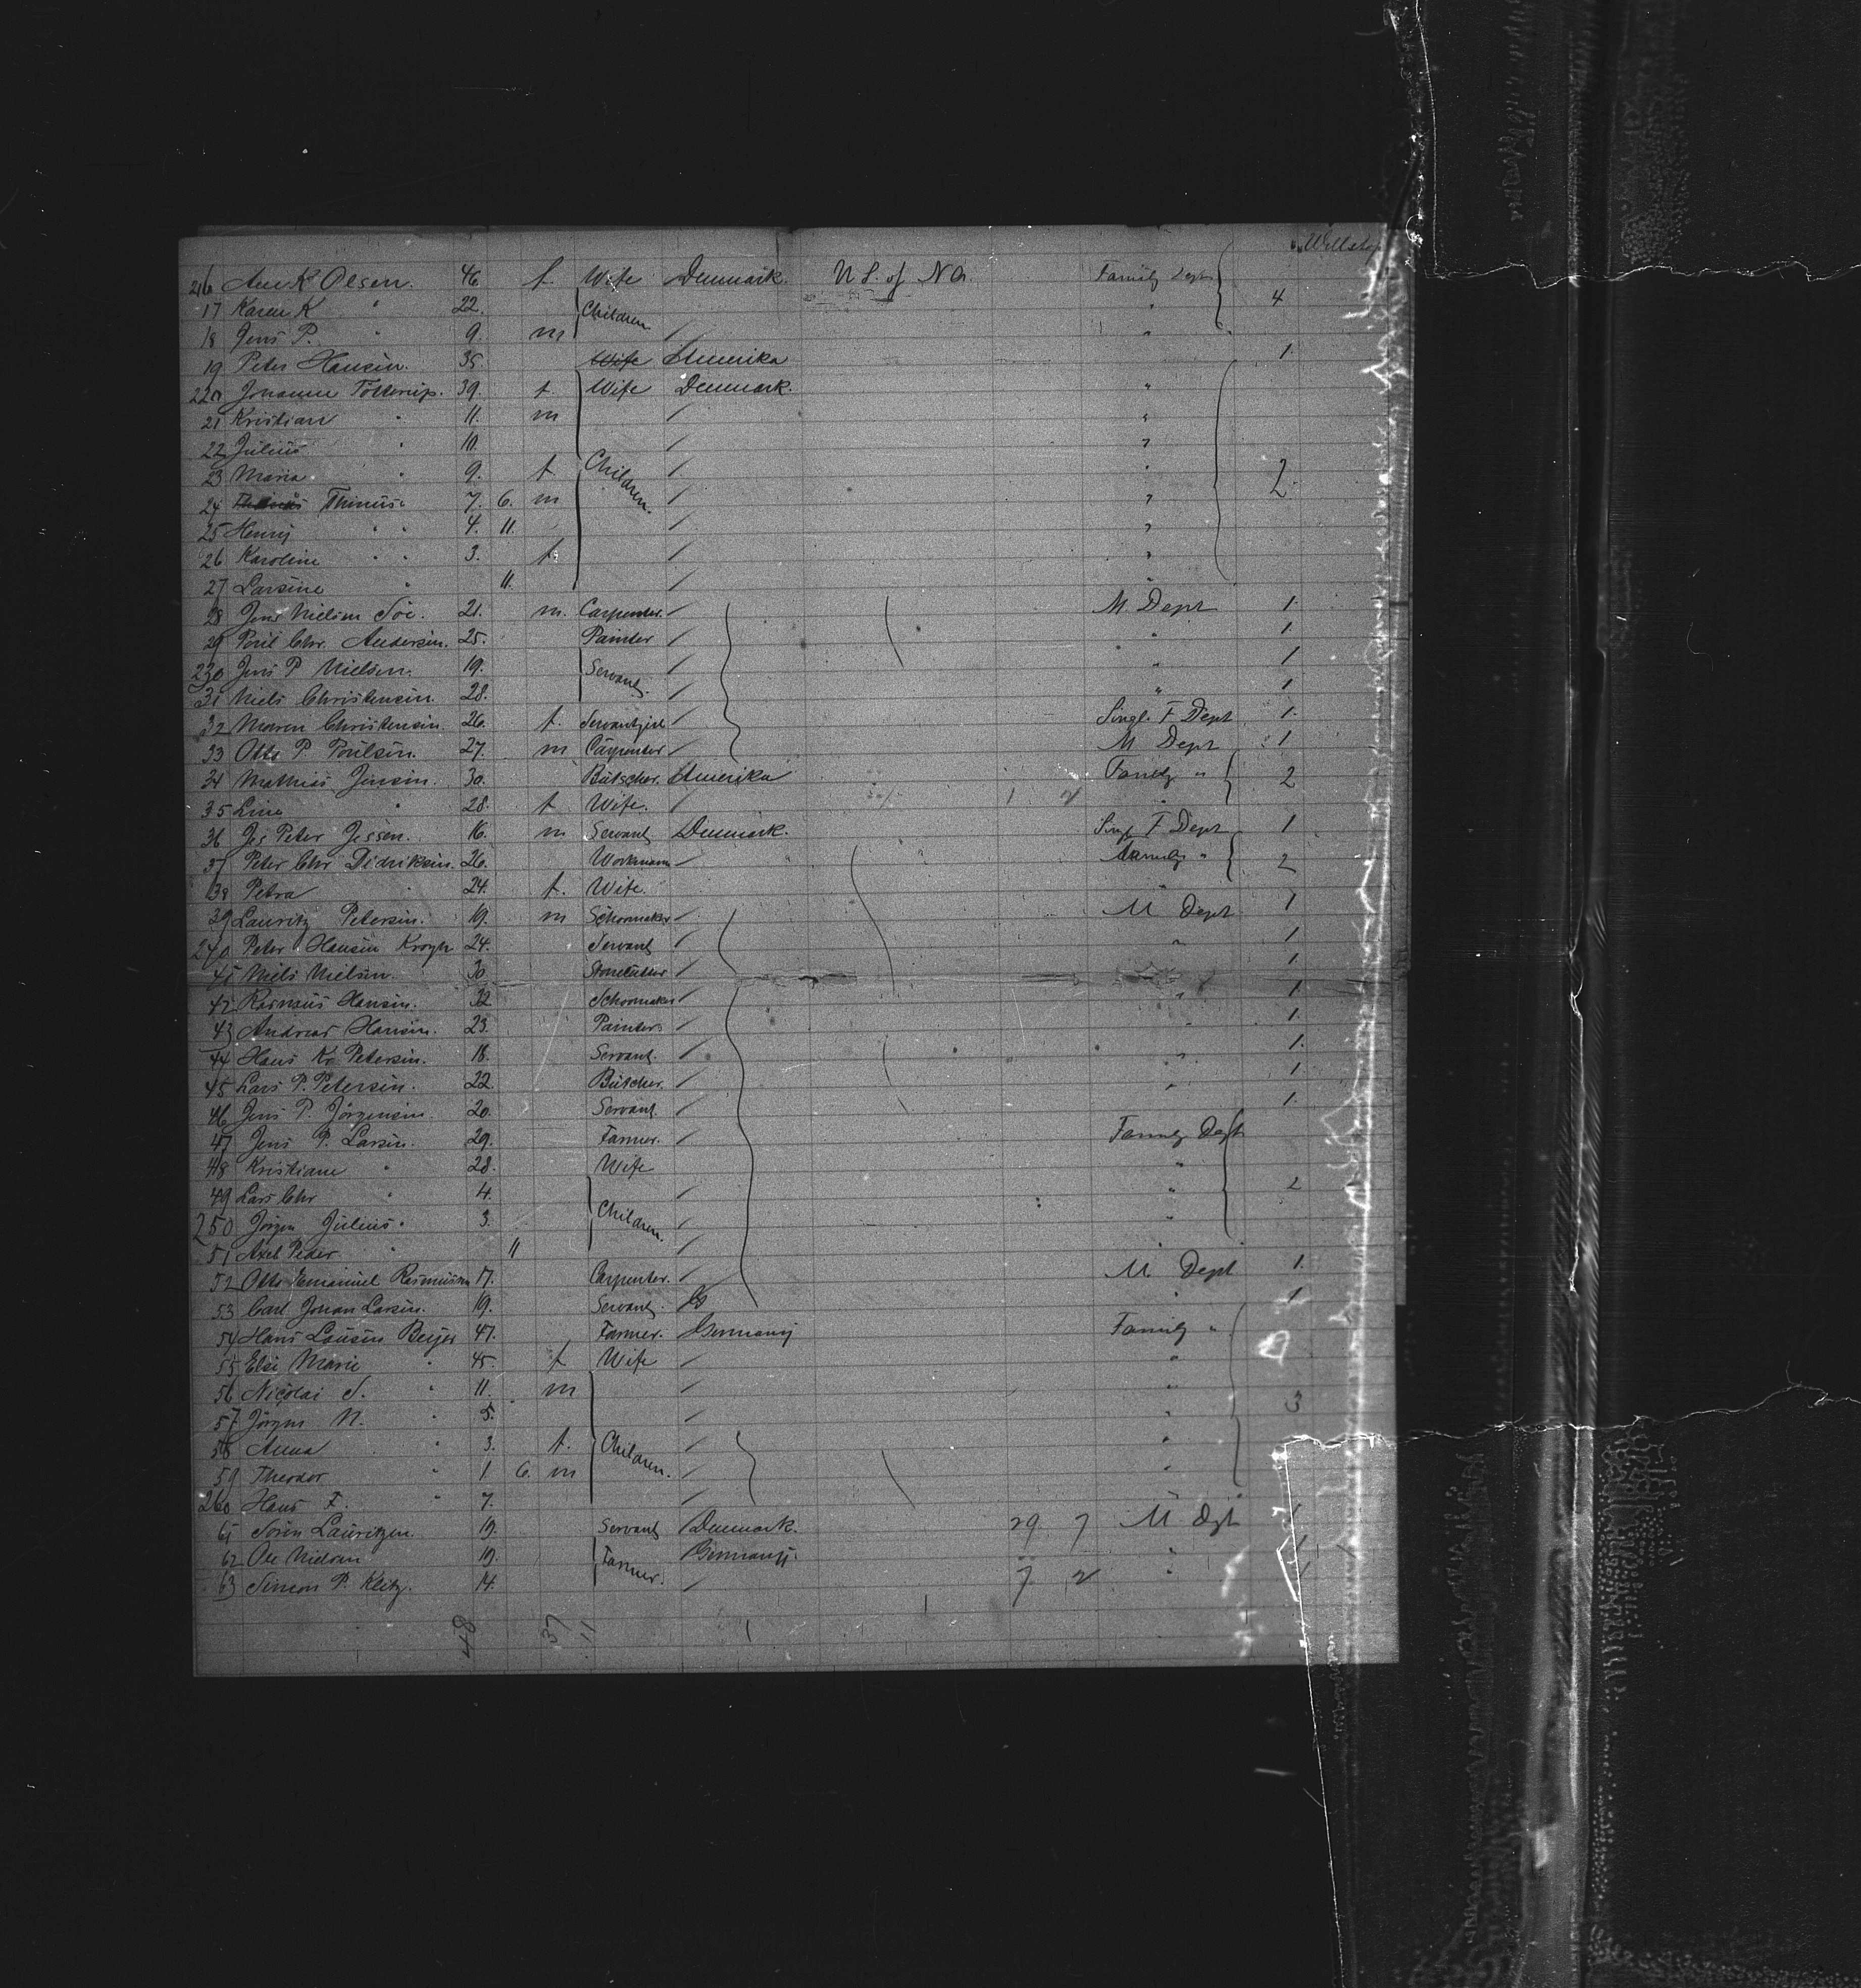 Willstop
216 Ane K Olsen. 46 f. Wife Denmark. U S. of N A. Family Dept 4
17 Karen K " 22. Children "
18 Jens P. " 9. m / "
19 Peter Hansen. 35. Wife Amerika 1
220 Johanne Tofterup. 39. f. Wife Denmark. "
21 Kristian " 11. m / "
22 Julius " 10. / "
23 Maria " 9. f Children. / " 2
24 Thinus " 7. 6. m / "
25 Henry " " 4. 11. / "
26 Karoline " " 3. f. / "
27 Larsine " 11. / "
28 Jens Nielsen Söe. 21. m. Carpenter. / M Dept 1.
29 Poul Chr. Andersen. 25. Painter / " 1.
230 Jens P Nielsen. 19. Servant. / " 1
31 Niels Christensen. 28. / " 1
32 Maren Christensen. 26. f. Servantgirl / Single F Dept 1.
33 Otto P Poulsen. 27. m Carpenter / M Dept 1
34 Mathias Jensen. 30. Bütscher. Amerika Family " 2
35 Line " 28. f Wife. / 1 2 "
36 Jes Peter Jessen. 16. m Servant Denmark. Singl F Dept 1
37 Peter Chr Didriksen. 26. Workmann / Family " 2
38 Petra " 24. f. Wife. "
39 Lauritz Petersen. 19. m Schoomaker / M Dept 1
240 Peter Hansen Krogh 24. Servant / " 1
41 Niels Nielsen. 30 Stonecutter / 1
42 Rasmus Hansen. 32 Schoomaker / " 1.
43 Andreas Hansen. 23. Painters / " 1.
44 Hans Kr. Petersen. 18. Servant. / " 1.
45 Lars P. Petersen. 22. Bütcher. / " 1
46 Jens P. Jörgensen. 20. Servant. 1.
47 Jens P. Larsen. 29. Farmer. / Family Dept
48 Kristiane " 28. Wife "
49 Lars Chr " 4. Children. / " 2
250 Jörgen Julius. " 3. / "
51 Axel Peder " 11 /
52 Otto Emanuel Rasmussen 17. Carpenter. / M Dept 1.
53 Carl Johan Larsen. 19. Servant. " 1
54 Hans Lausen Beijer 47. Farmer. Germany Family "
55 Else Marie " 45. f Wife / "
56 Nicolai S. " 11. m / " 3
57 Jörgen N. " 5. / "
58 Anna " 3. f. Children. / "
59 Theodor " 1. 6. m / "
260 Hans F. " 7. /
61 Sören Lauritzen. 19. Servant Denmark. 29 7 M Dept 1
62 Ole Nielsen 19. Farmer. Germany. " 1
63 Simon P. Kleitz. 14. / 7 2 " 1
48 37 11